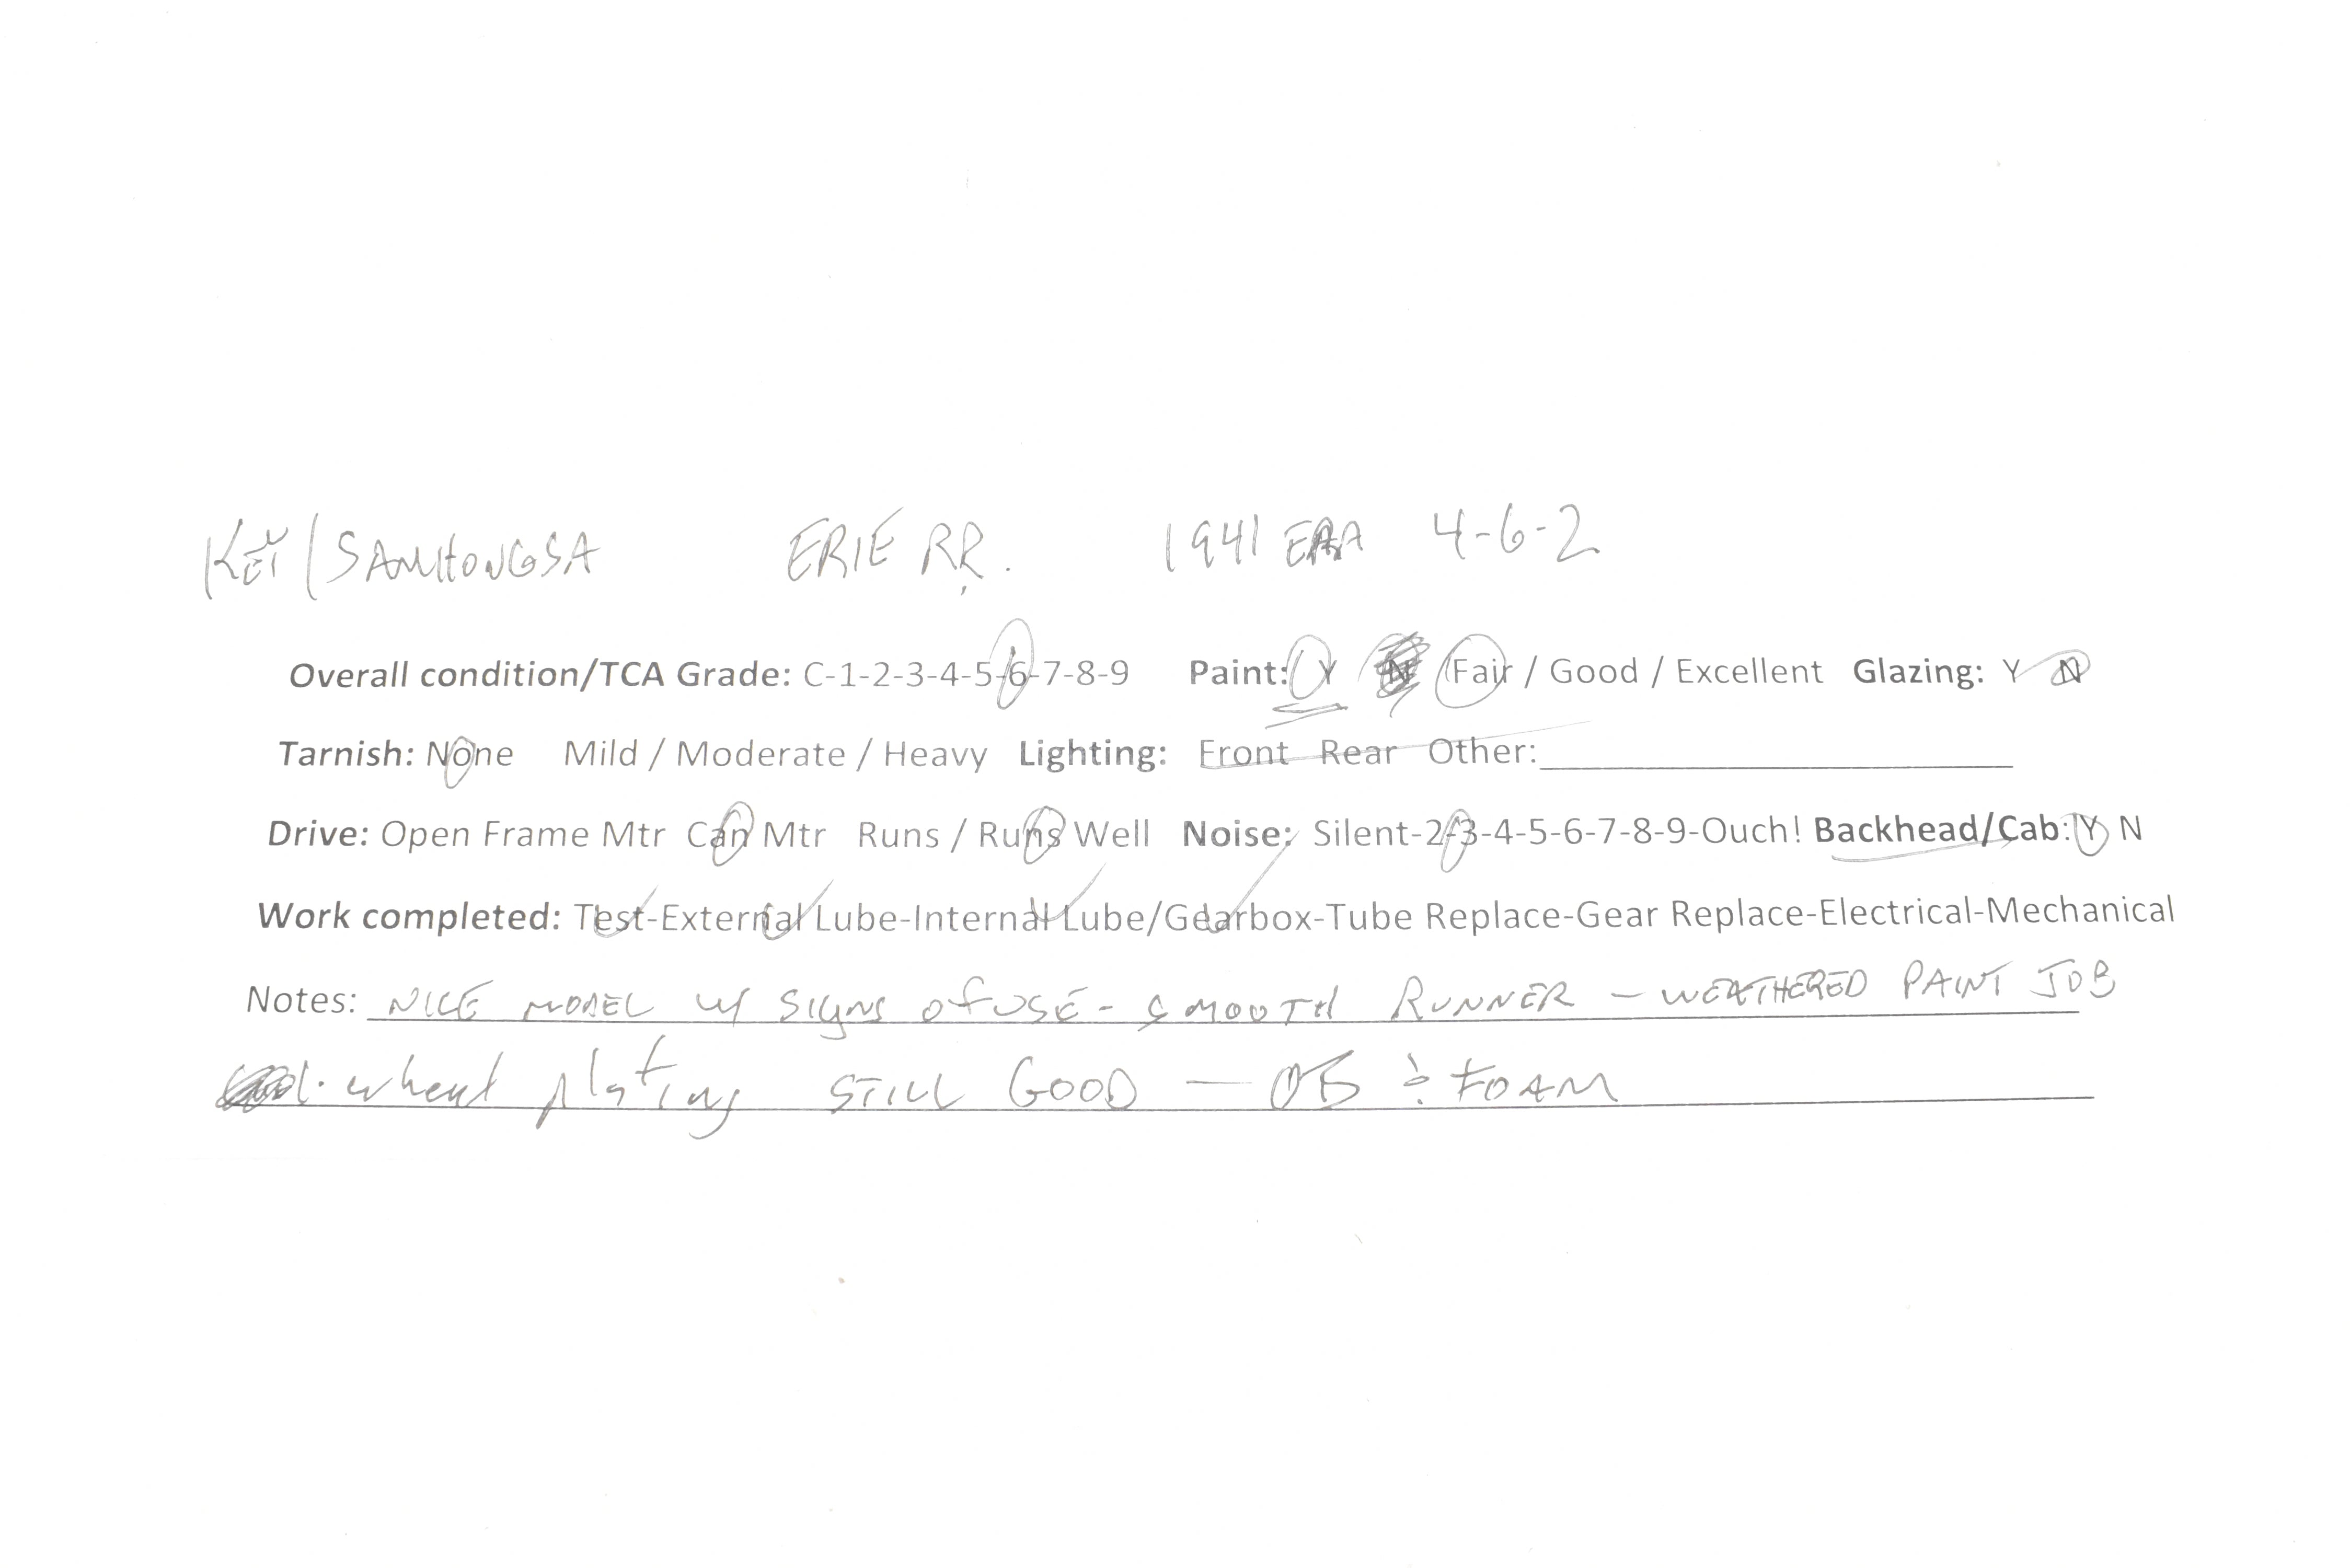 KEY/SAMHONGSA ERIE RR. 1941 ERA 4-6-2
Overall condition/TCA Grade: C-1-2-3-4-5-6-7-8-9 Paint: Y / N Fair / Good / Excellent Glazing: Y N
Tarnish: None Mild / Moderate / Heavy Lighting: Front Rear Other:
Drive: Open Frame Mtr Can Mtr Runs / Runs Well Noise: Silent-2-3-4-5-6-7-8-9-Ouch! Backhead/Cab: Y N
Work completed: Test-External Lube-Internal Lube/Gearbox-Tube Replace-Gear Replace-Electrical-Mechanical
Notes: NICE MODEL w/ SIGNS OF USE - SMOOTH RUNNER - WEATHERED PAINT JOB
wheel plating STILL GOOD - OB & FOAM